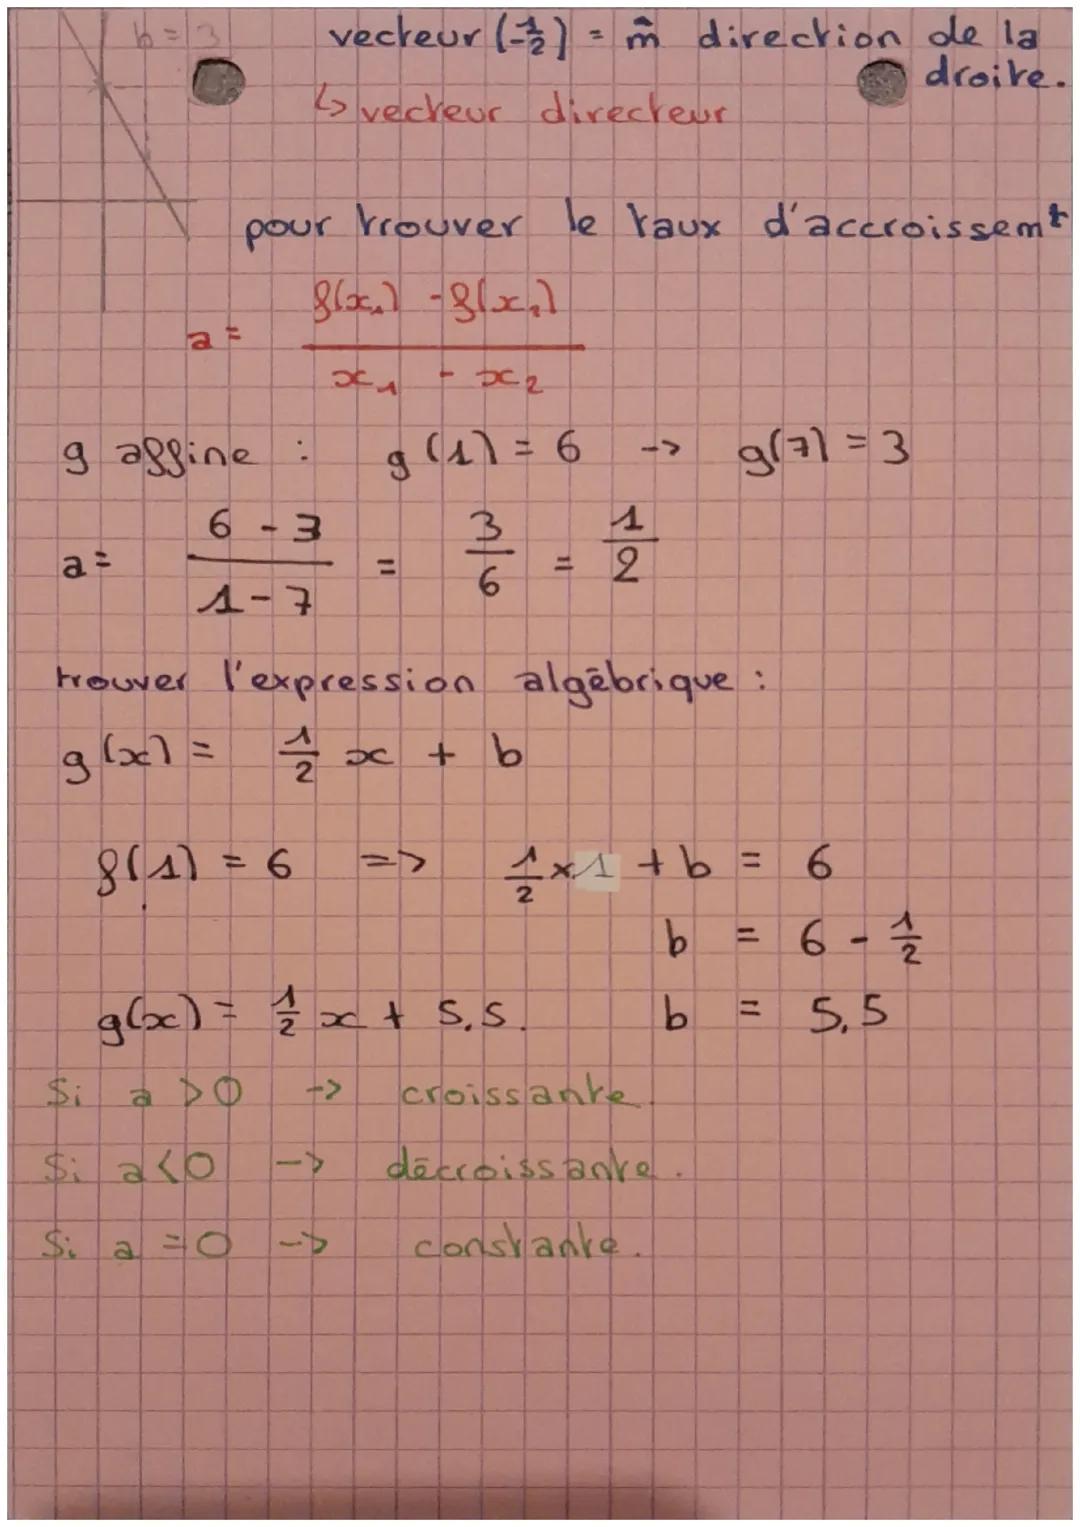 b = 3
vecteur (-1/2) = m̂ direction de la
droite.
↳ vecteur directeur
pour trouver le taux d'accroissemt
a = (f(x₁) - f(x₂)) / (x₁ - x₂)
g affine : g(1) = 6 -> g(7) = 3
a = (6 - 3) / (1 - 7) = 3/6 = 1/2
trouver l'expression algébrique :
g(x) = 1/2 x + b
f(1) = 6 => 1/2 × 1 + b = 6
b = 6 - 1/2
g(x) = 1/2 x + 5,5. b = 5,5
Si a > 0 -> croissante.
Si a < 0 -> décroissante.
Si a = 0 -> constante.